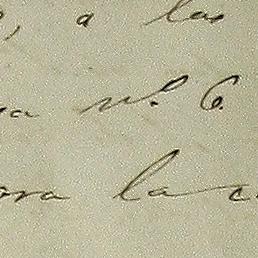 , a las
nº. 6.
ora la